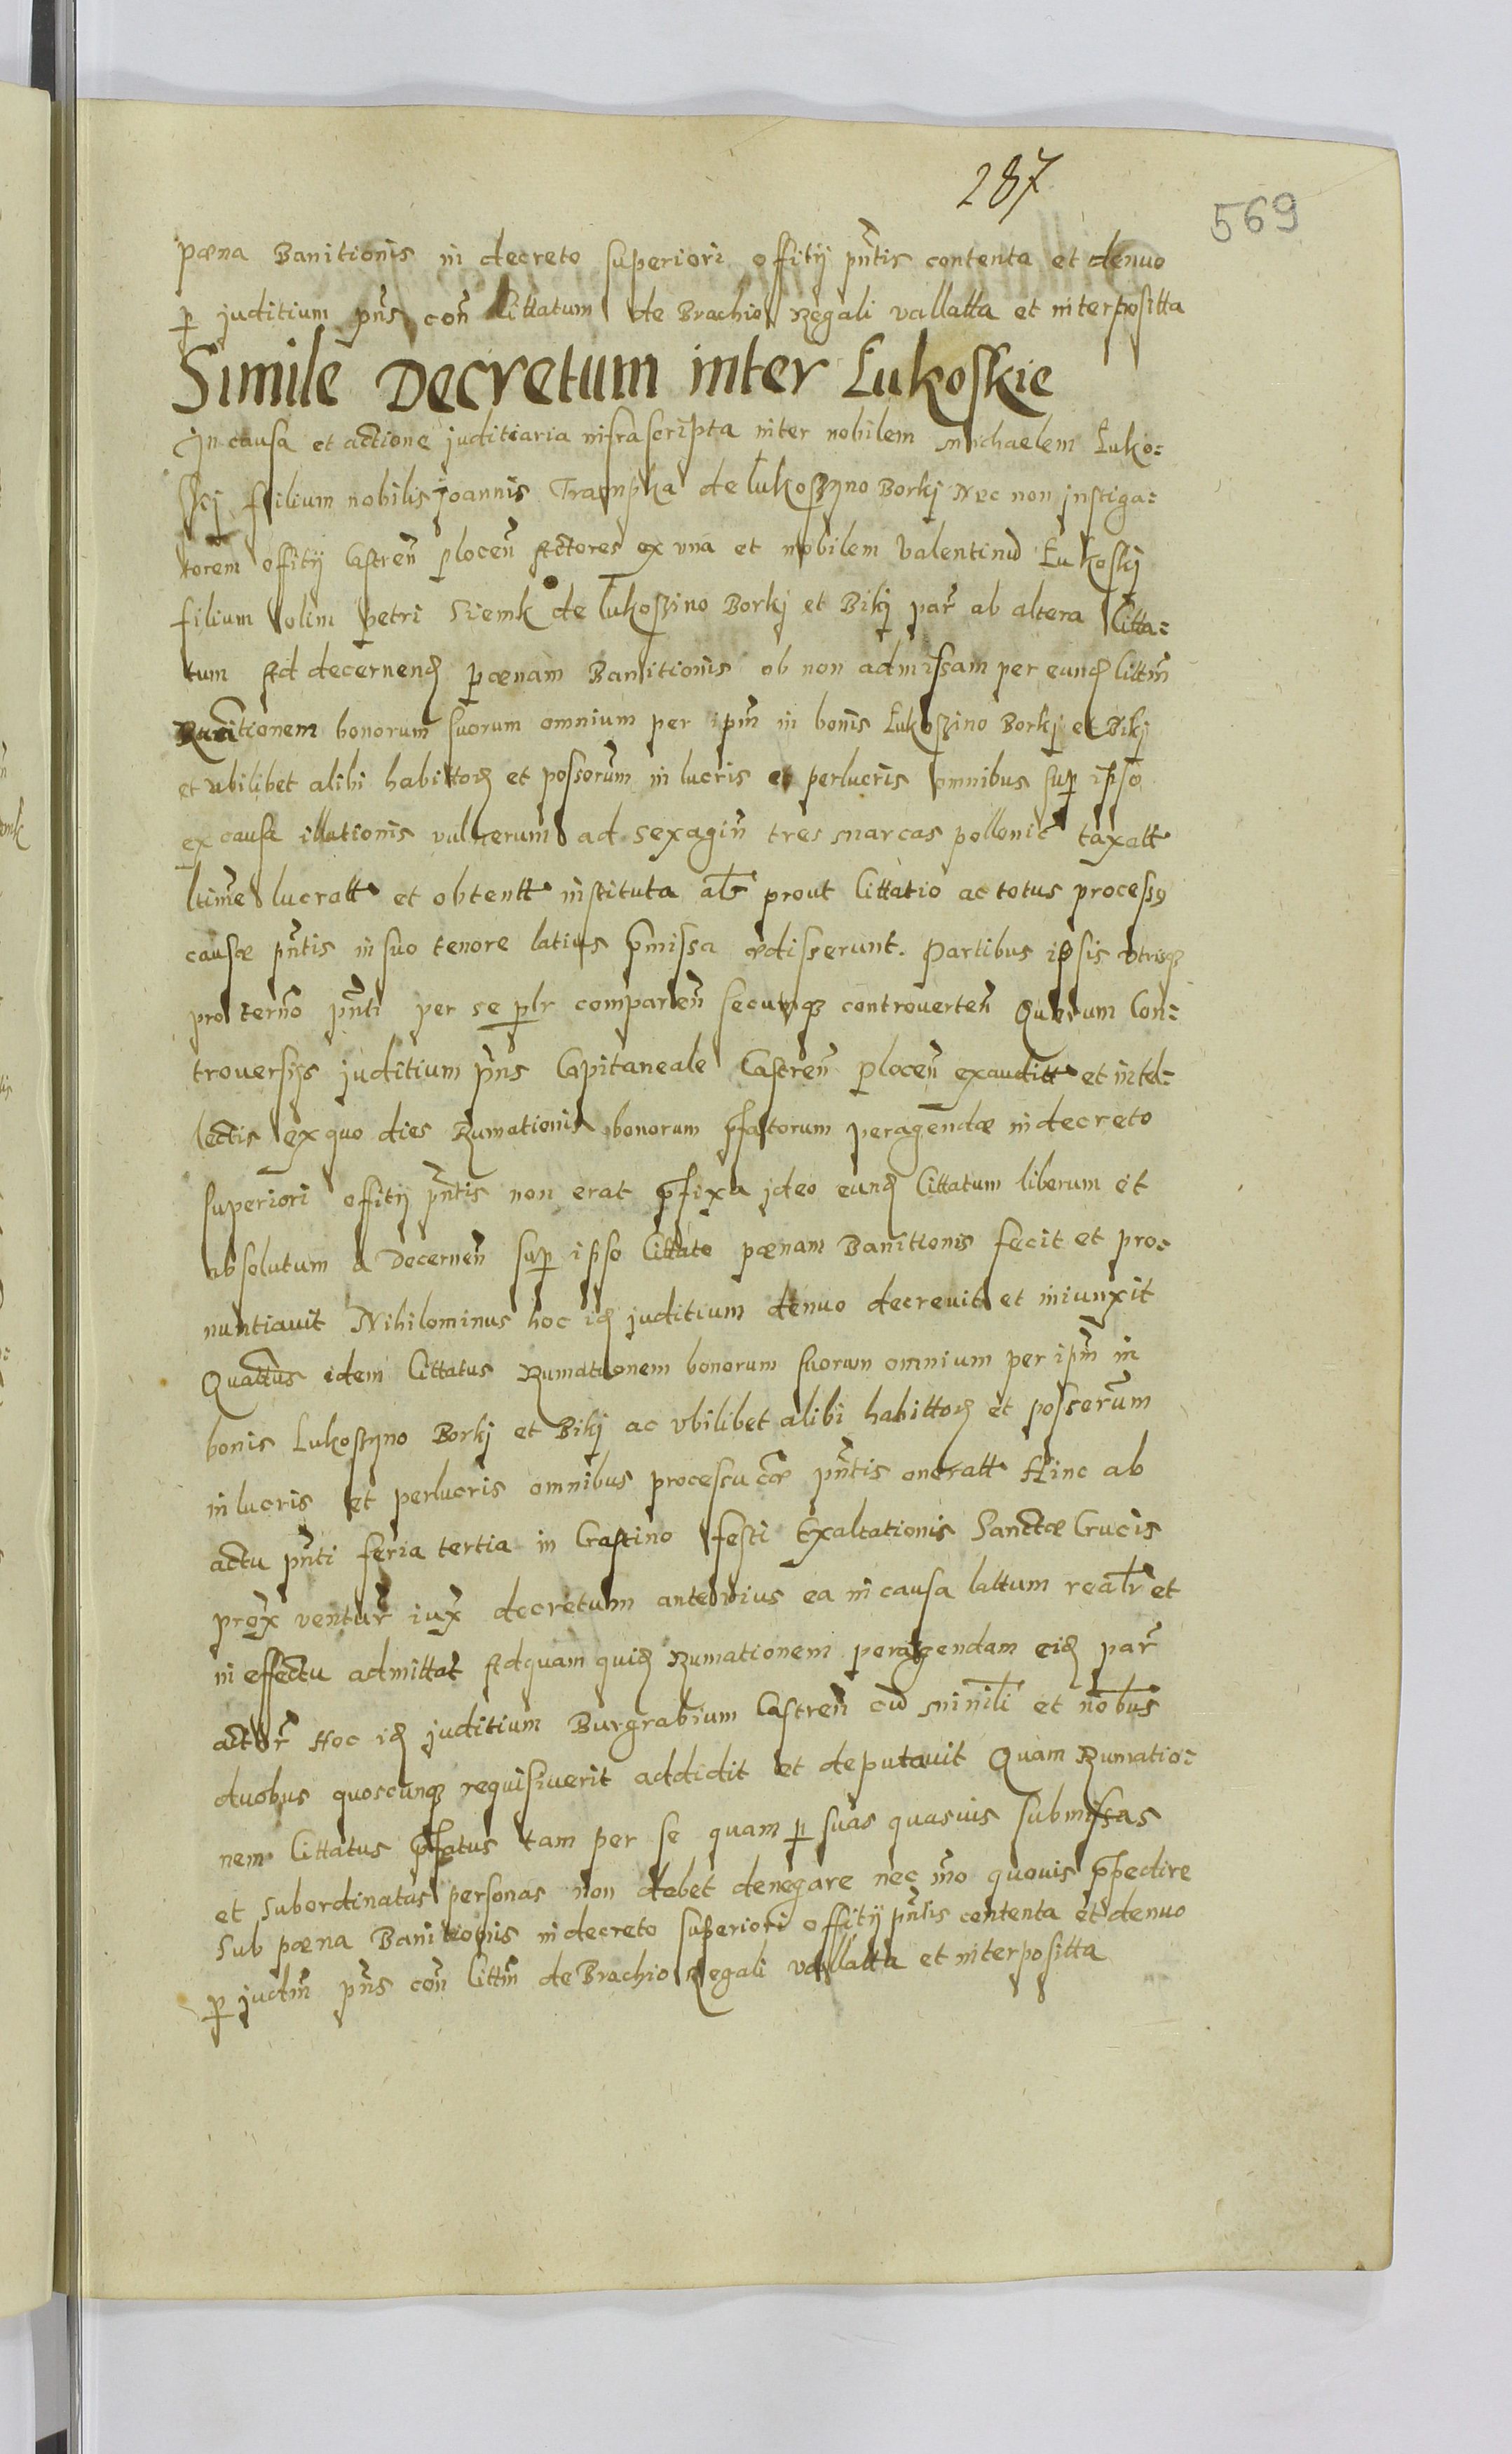 287
569
pœna Banitionis in decreto superiori offitij pn̄tis contenta et denuo
p juditium pn̄s con̄ Cittatum de Brachio Regali vallatta et interpositta
Simile Decretum inter Łukoskie
In causa et actione juditiaria infrascripta inter nobilem Michaelem Łuko:
skj filium nobilis joannis Trampka de Łukoszyno Borkj Nec non jnstiga:
torem offitij Castren̄ plocen̄ Actores ex vna et nobilem Valentinū Łukoskj
filium olim petri Siemk de Łukoszino Borkj et Bikj par̄ ab altera Citta:
tum Ad decernend pœnam Banitionis ob non admissam per eund Cittm̄
Rumationem bonorum suorum omnium per ipm̄ in bonis Łukoszino Borkj et Bikj
et vbilibet alibi habittor et possorum̄ in lucris et perlucris omnibus sup ipso
ex causa illationis vulnerum ad sexagin̄ tres marcas pollonic̄ taxatt
ltime lucratt et obtentt instituta alr̄ prout Cittatio ac totus process9
causæ pn̄tis in suo tenore latius p̄missa ædisserunt. Partibus ipsis vtrisq3
pro term̄o pn̄ti per se plr comparen̄ secumq3 controverten̄ Quarum Con:
troversijs juditium pn̄s Capitaneale Castren̄ plocen̄ exauditt et intel:
lectis ex quo dies Rumationis bonorum p̄fatorum peragendæ in decreto
superiori offitij pn̄tis non erat p̄fixa jdeo eund Cittatum liberum et
absolutum a Decernen̄ sup ipso Cittato pœnam Banitionis fecit et pro:
nuntiavit Nihilominus hoc id juditium denuo decrevit et iniunxit
Quattus̄ idem Cittatus Rumationem bonorum suorum omnium per ipm̄ in
bonis Łukoszyno Borkj et Bikj ac vbilibet alibi habittor et possorum̄
in lucris et perlucris omnibus processu cǣ pn̄tis oneratt Hinc ab
actu pn̄ti feria tertia in Crastino festi Exaltationis Sanctæ Crucis
prox̄ ventur̄ iux̄ decretum anterius ea in causa lattum realr̄ et
in effectu admittat Ad quam quid Rumationem peragendam eid par̄
actor̄ Hoc id juditium Burgrabium Castren̄ cū minilī et nōbus
duobus quoscunq3 requisiverit addidit et deputavit Quam Rumatio:
nem Cittatus p̄fatus tam per se quam p suas quasvis submissas
et subordinatas personas non debet denegare nec mo quovis p̄pedire
Sub pœna Banitionis in decreto superiori offitij pn̄tis contenta et denuo
p judm̄ pn̄s con̄ Cittm̄ de Brachio Regali vallatta et interpositta